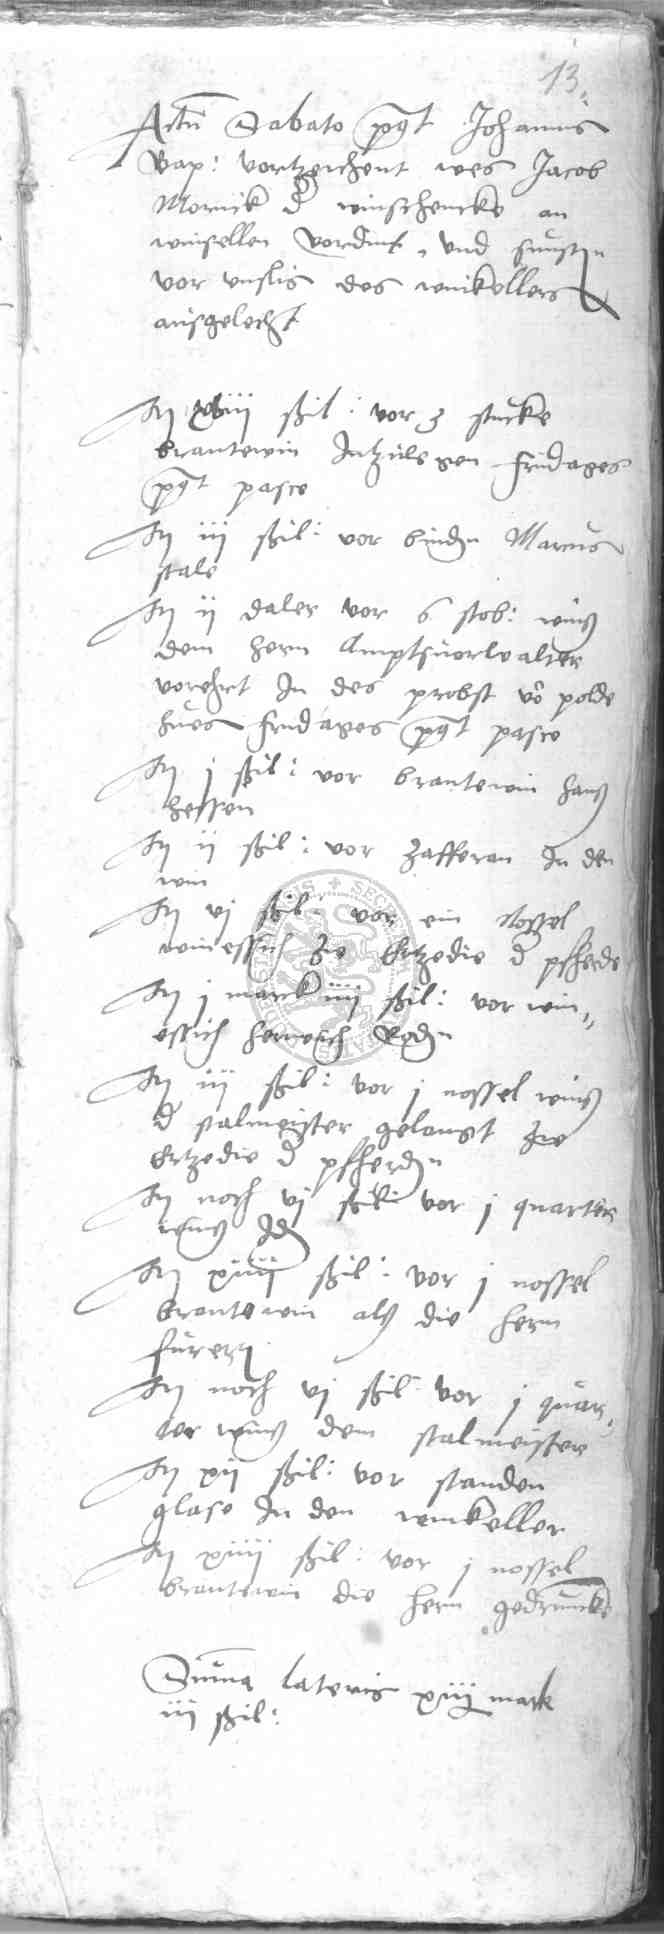 13.
Actu Sabato post Johannis
Bap: vortzeichent wes Jacob
Mornick d winschencke an
winsellen vordint, und sunsten
vor unslis des winkellers
ausgelecht
It xviii ßil: vor 3 stucke
brantewin fridages
post pasce
It iii ßil: vor binden Marcus
stale
It ij daler vor 6 stob: wins
dem hern Amptsvorwalter
vorehrt In des probst vo polde
hues fridages post pasce
It j ßil: vor brantewin hans
hessen
It ij ßil: vor zafferan In den
win
It vj ßil: vor ein nossel
winessich zu Ertzedie d pfherde
It j mark iiij ßil: vor win„
essich
It iij ßil: vor j nossel wins
d stalmeister gelangt zu
Ertzedie d pfherden
It noch vj ßil: vor j quarter
wins
It xiiij ßil: vor j nossel
brantewin als die hern

It noch vj ßil: vor j quar„
ter wins dem stalmeister
It xij ßil: vor standen
glase In den winkeller
It xiiij ßil: vor j nossel
brantewin die hern gedruncke
Summa lateris xiij mark
iij ßil: